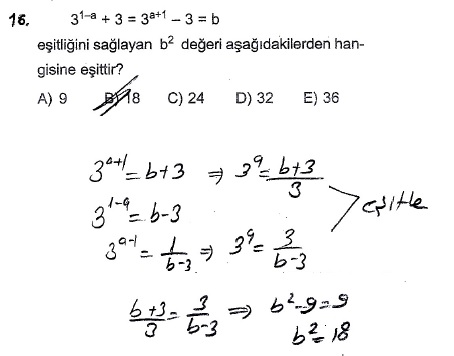 16. 3^(1-a) + 3 = 3^(a+1) – 3 = b
eşitliğini sağlayan b² değeri aşağıdakilerden han-
gisine eşittir?
A) 9 B) 18 C) 24 D) 32 E) 36
3^(a+1) = b+3 ⇒ 3^a = (b+3)/3
3^(1-a) = b-3
eşitle
3^(a-1) = 1/(b-3) ⇒ 3^a = 3/(b-3)
(b+3)/3 = 3/(b-3) ⇒ b²-9=9
b²=18